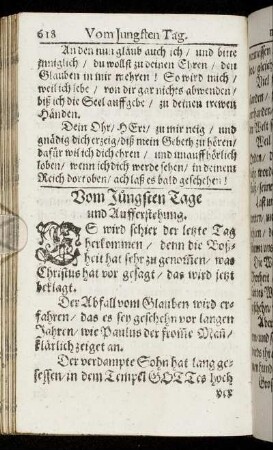 618 Vom Jungsten Tag.
An den nun glaub auch ich / und bitte
inniglich / du wollst zu deinen Ehren / den
Glauben in mir mehren! So wird mich /
weil ich lebe / von dir gar nichts abwenden /
biß ich die Seel auffgebe / zu deinen trewen
Händen.
Dein Ohr / HErr / zu mir neig / und
gnädig dich erzeig / diß mein Gebeth zu hören /
dafür wil ich dich ehren / und unauffhörlich
loben / wenn ich dich werde sehen / in deinem
Reich dort oben / ach laß es bald geschehen!
Vom Jüngsten Tage
und Aufferstehung.
ES wird schier der letzte Tag
herkommen / denn die Boß-
heit hat sehr zu genom̃en / was
Christus hat vor gesagt / das wird jetzt
beklagt.
Der Abfall vom Glauben wird er-
fahren / das es sey geschehn vor langen
Jahren / wie Paulus der from̃e Man̄ /
klärlich zeiget an.
Der verdampte Sohn hat lang ge-
sessen / in dem Tempel GOTTes hoch